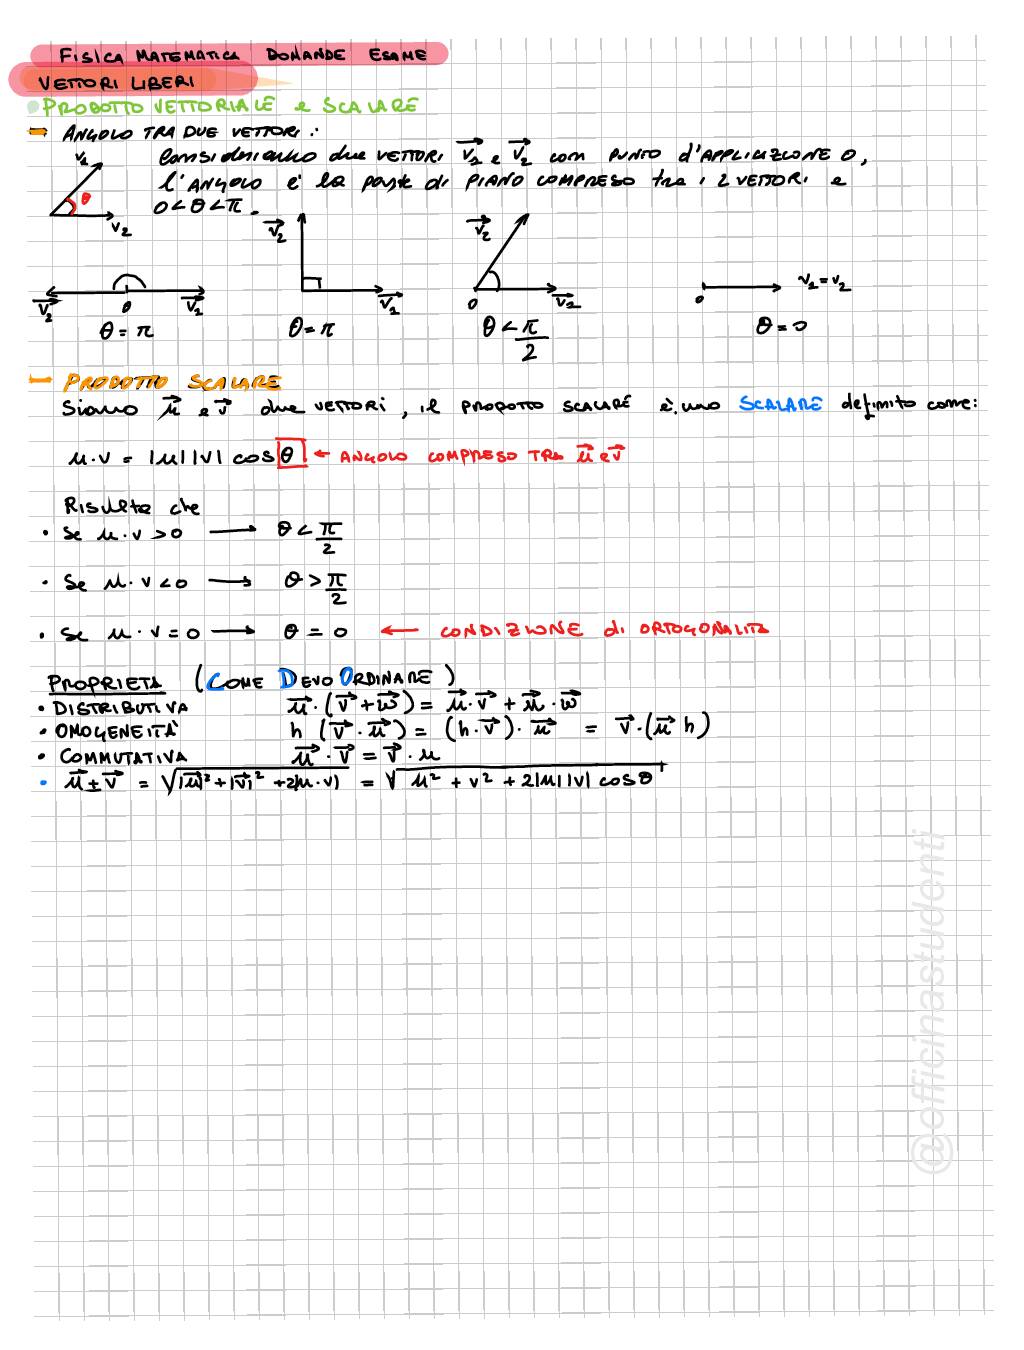 FISICA MATEMATICA DOMANDE ESAME
VETTORI LIBERI
PRODOTTO VETTORIALE e SCALARE
ANGOLO TRA DUE VETTORI:
Consideriamo due VETTORI V₁ e V₂ con PUNTO d'APPLICAZIONE O,
l'ANGOLO è la parte di PIANO COMPRESO tra i 2 VETTORI e
0<θ<π.
V₁
θ
V₂
V₂ O V₁
θ = π
V₂
V₁
θ = π
V₂
O V₁
θ < π/2
O V₁ = V₂
θ = 0
PRODOTTO SCALARE
Siano u e v due VETTORI, il PRODOTTO SCALARE è uno SCALARE definito come:
u·v = |u||v| cos θ ← ANGOLO COMPRESO TRA u e v
Risulta che
• Se u·v > 0 → θ < π/2
• Se u·v < 0 → θ > π/2
• Se u·v = 0 → θ = 0 ← CONDIZIONE di ORTOGONALITÀ
PROPRIETÀ (COME DEVO ORDINARE)
• DISTRIBUTIVA u·(v+w) = u·v + u·w
• OMOGENEITÀ h (v·u) = (h·v)·u = v·(u h)
• COMMUTATIVA u·v = v·u
• u±v = √|u|²+|v|²+2|u·v| = √u² + v² + 2|u||v| cos θ
@officinastudenti